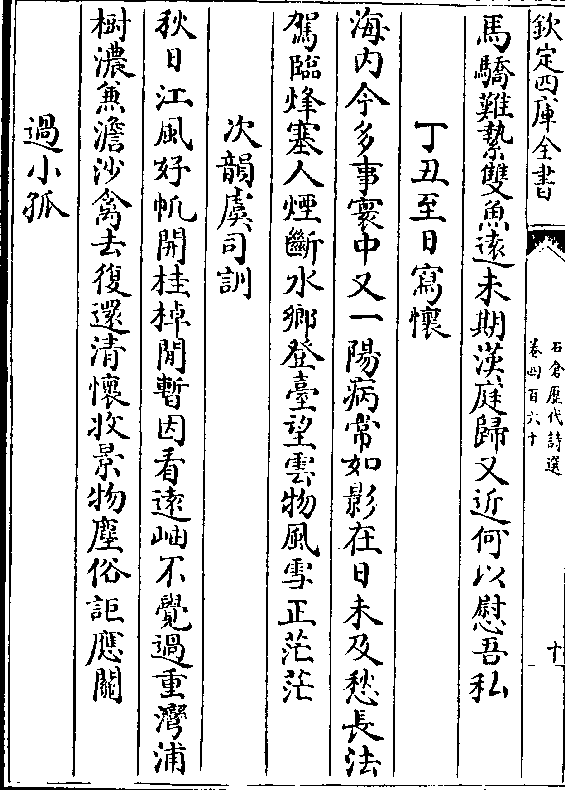 欽定四庫全書
石倉歷代詩選
卷四百六十
十
馬驕難縶雙魚遠未期漢庭歸又近何以慰吾私
丁丑至日寫懷
海内今多事寰中又一陽病常如影在日未及愁長法
駕臨烽塞人煙斷水鄉登臺望雲物風雪正茫茫
次韻虞司訓
秋日江風好帆開桂棹閒暫因看遠岫不覺過重灣浦
樹濃兼澹沙禽去復還清懷收景物塵俗詎應關
過小孤